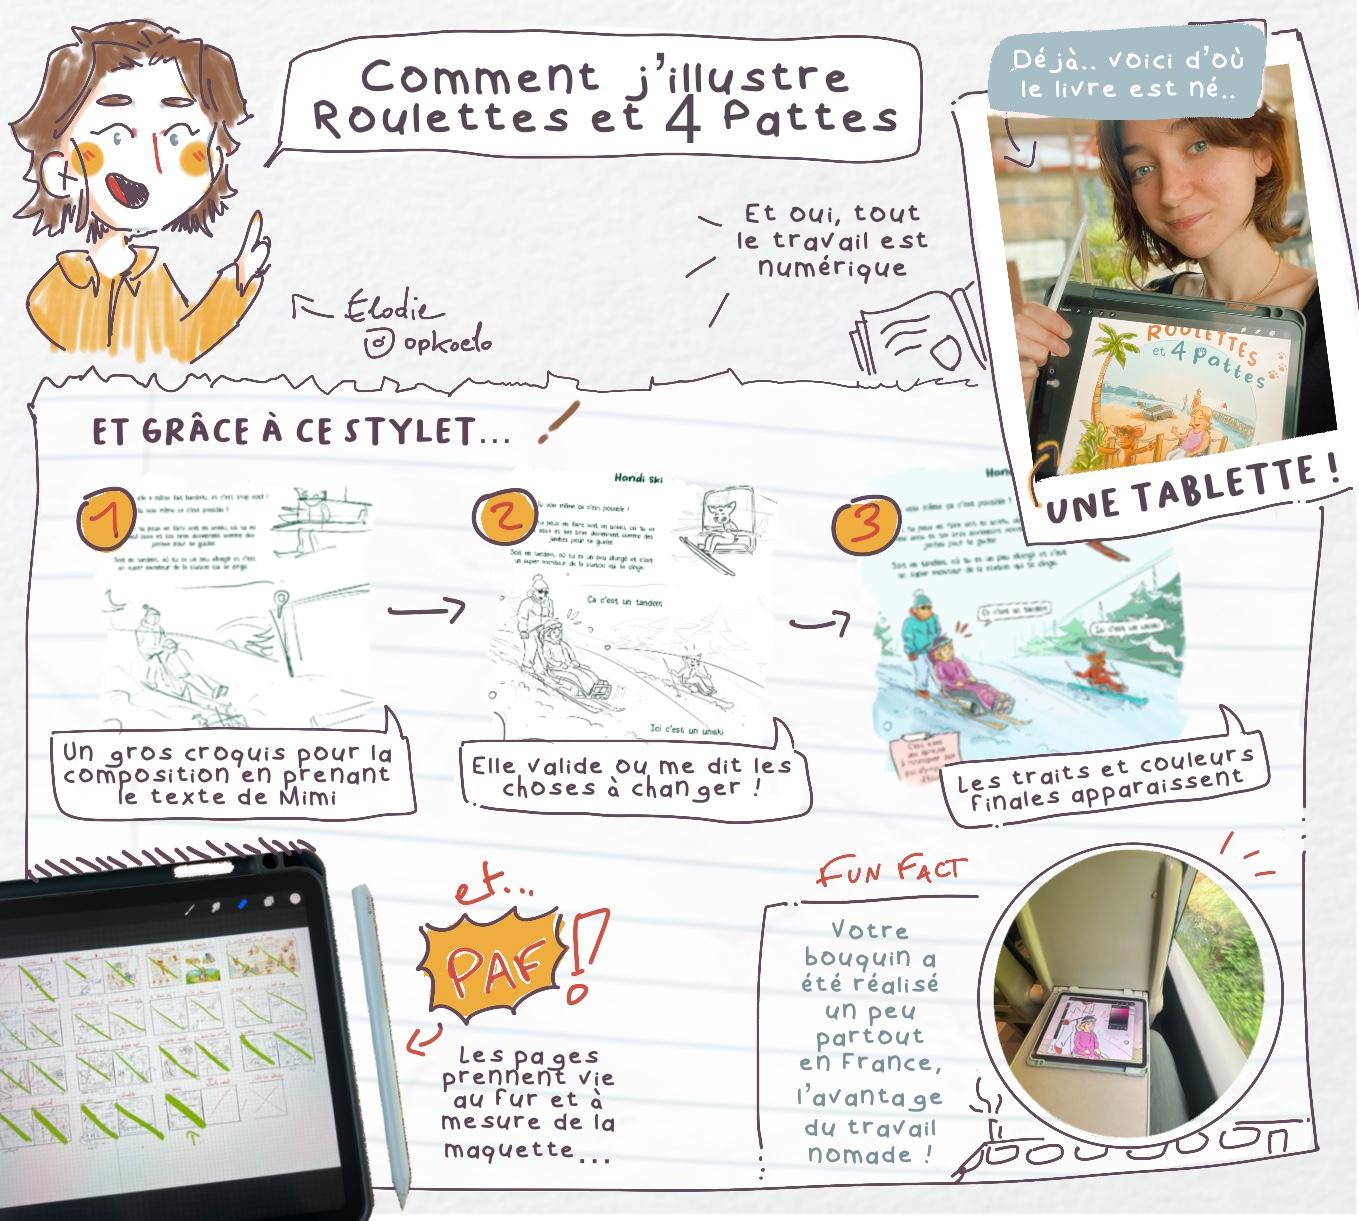 Comment j'illustre
Roulettes et 4 Pattes
Déjà.. voici d'où
le livre est né..
Et oui, tout
le travail est
numérique
Élodie
opkoelo
ROULETTES
et 4 Pattes
UNE TABLETTE !
ET GRÂCE À CE STYLET...
1
2
Handi Ski
voir même ça c'est possible !
Soit en tandem, où tu es un peu allongé et c'est
un super moniteur de la station qui te dirige.
Ça c'est un tandem
Ici c'est un uniski
3
Ça c'est un tandem
Ici c'est un uniski
Un gros croquis pour la
composition en prenant
le texte de Mimi
Elle valide ou me dit les
choses à changer !
Les traits et couleurs
finales apparaissent
et...
PAF !
Les pages
prennent vie
au fur et à
mesure de la
maquette...
FUN FACT
Votre
bouquin a
été réalisé
un peu
partout
en France,
l'avantage
du travail
nomade !